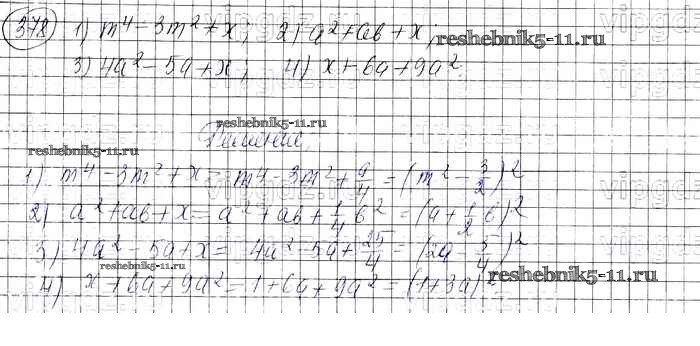 378 1) m⁴ - 3m² + x; 2) a² + ab + x;
reshebnik5-11.ru
3) 4a² - 5a + x; 4) x + 6a + 9a².
reshebnik5-11.ru
Решение.
reshebnik5-11.ru
1) m⁴ - 3m² + x = m⁴ - 3m² + 9/4 = (m² - 3/2)²
2) a² + ab + x = a² + ab + 1/4 b² = (a + 1/2 b)²
3) 4a² - 5a + x = 4a² - 5a + 25/4 = (2a - 5/4)²
reshebnik5-11.ru
reshebnik5-11.ru
4) x + 6a + 9a² = 1 + 6a + 9a² = (1 + 3a)²